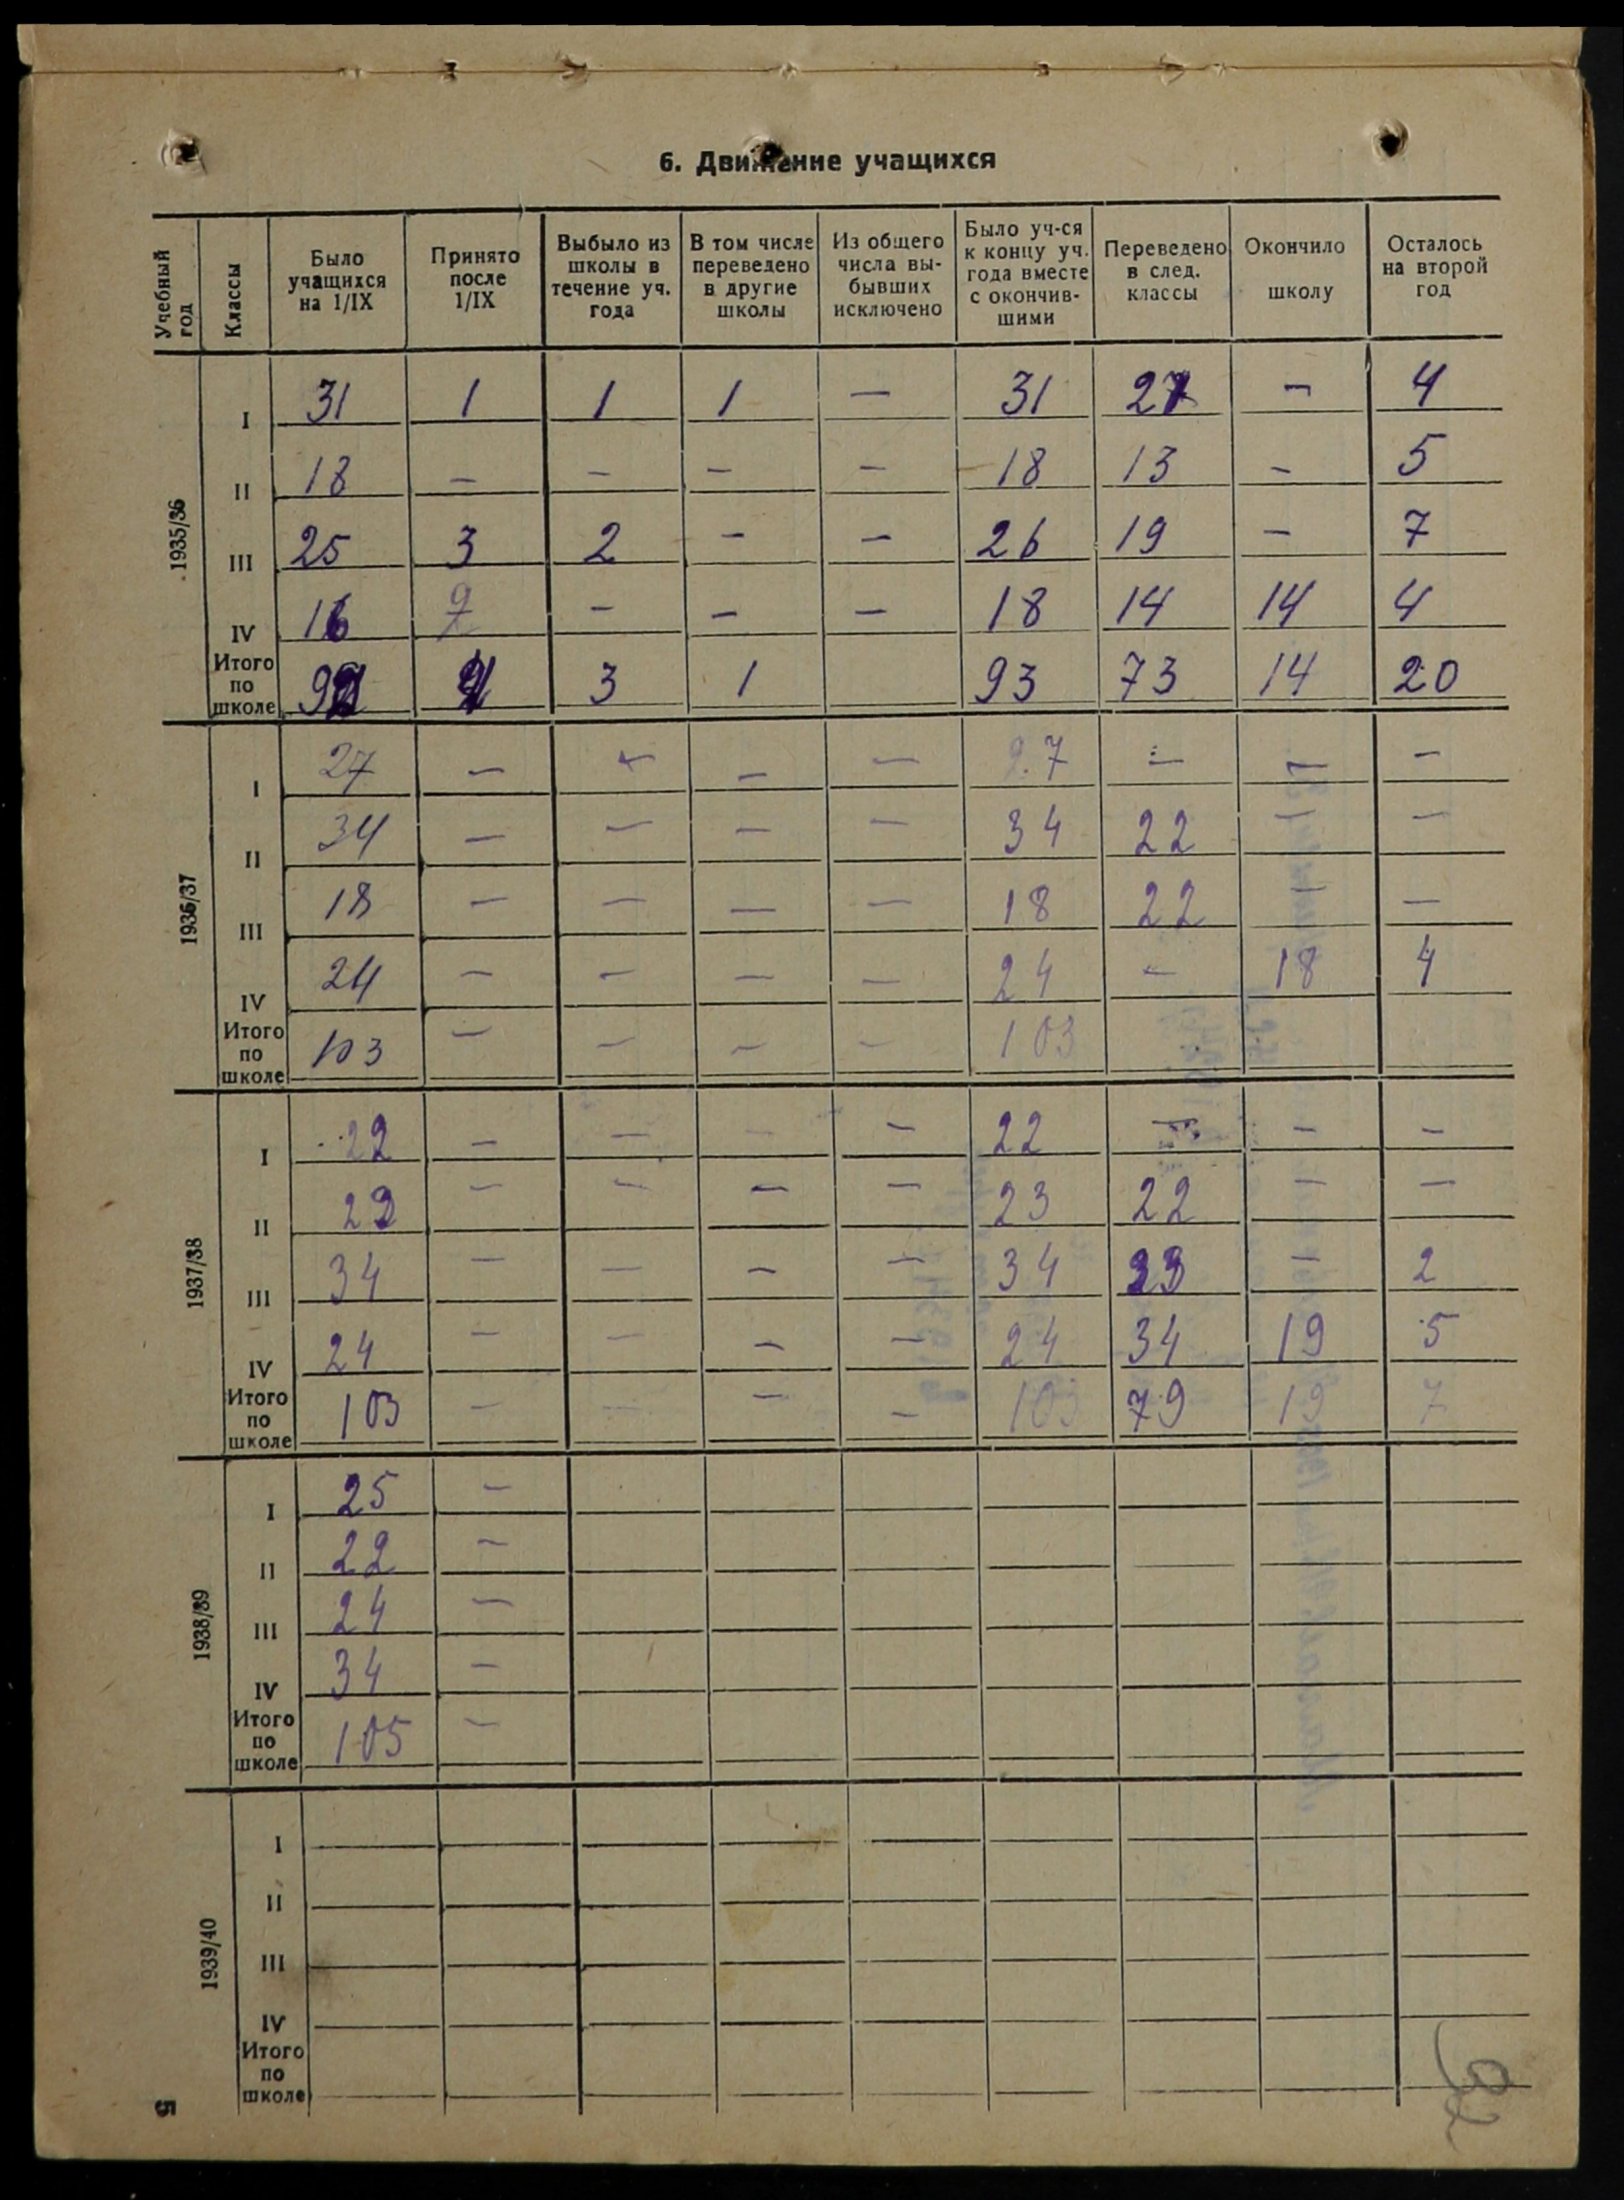 6. Движение учащихся
Учебный год Классы Было учащихся на 1/IX Принято после 1/IX Выбыло из школы в течение уч. года В том числе переведено в другие школы Из общего числа выбывших исключено Было уч-ся к концу уч. года вместе с окончившими Переведено в след. классы Окончило школу Осталось на второй год
1935/36
I 31 1 1 1 — 31 27 — 4
II 18 — — — — 18 13 — 5
III 25 3 2 — — 26 19 — 7
IV 16 — — — 18 14 14 4
Итого по школе 3 1 93 73 14 20
1936/37
I 27 — — — — 27 — — —
II 34 — — — — 34 22 — —
III 18 — — — — 18 22 — —
IV 24 — — — — 24 — 18 4
Итого по школе 103 — — — — 103
1937/38
I 22 — — — — 22 — — —
II 23 — — — — 23 22 — —
III 34 — — — — 34 23 — 2
IV 24 — — — — 24 34 19 5
Итого по школе 103 — — — — 103 79 19 7
1938/39
I 25 —
II 22 —
III 24 —
IV 34 —
Итого по школе 105 —
1939/40
I
II
III
IV
Итого по школе
5